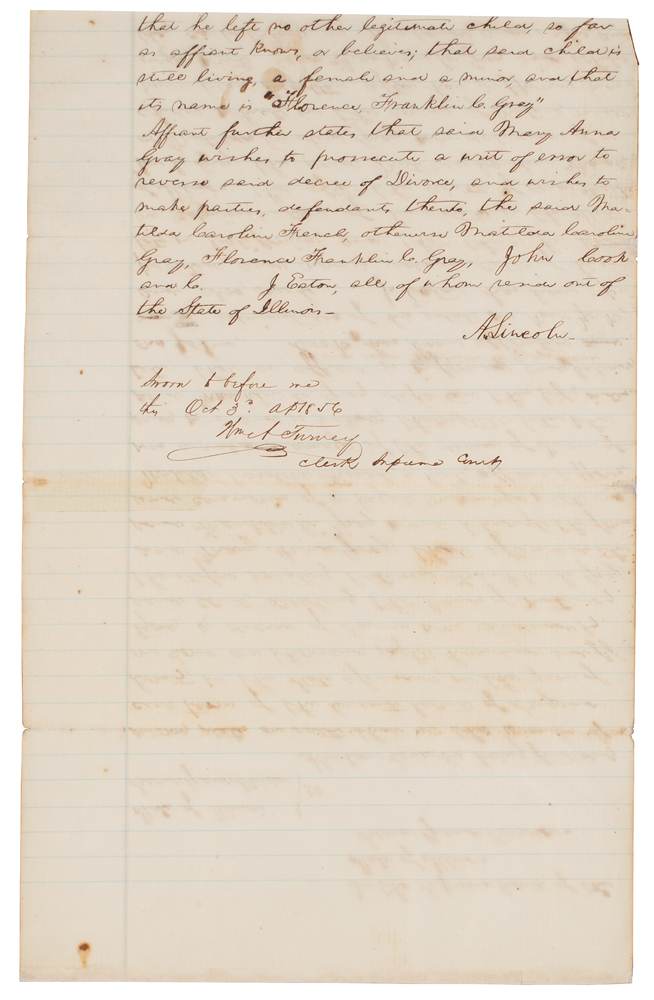 that he left no other legitimate child, so far
as affiant knows, or believes; that said child is
still living, a female and a minor, and that
its name is "Florence, Franklin C. Gray"
Affiant further states that said Mary Anna
Gray wishes to prossecute a writ of error to
reverse said decree of Divorce, and wishes to
make parties, defendants thereto, the said Ma-
tilda Caroline French, otherwise Matilda Caroline
Gray, Florence Franklin C. Gray, John Cook
and C. J Eaton, all of whom reside out of
the State of Illinois—
A. Lincoln—
Sworn to before me
this Oct 3d. AD 1856
Wm A Turney
Clerk Supreme Court